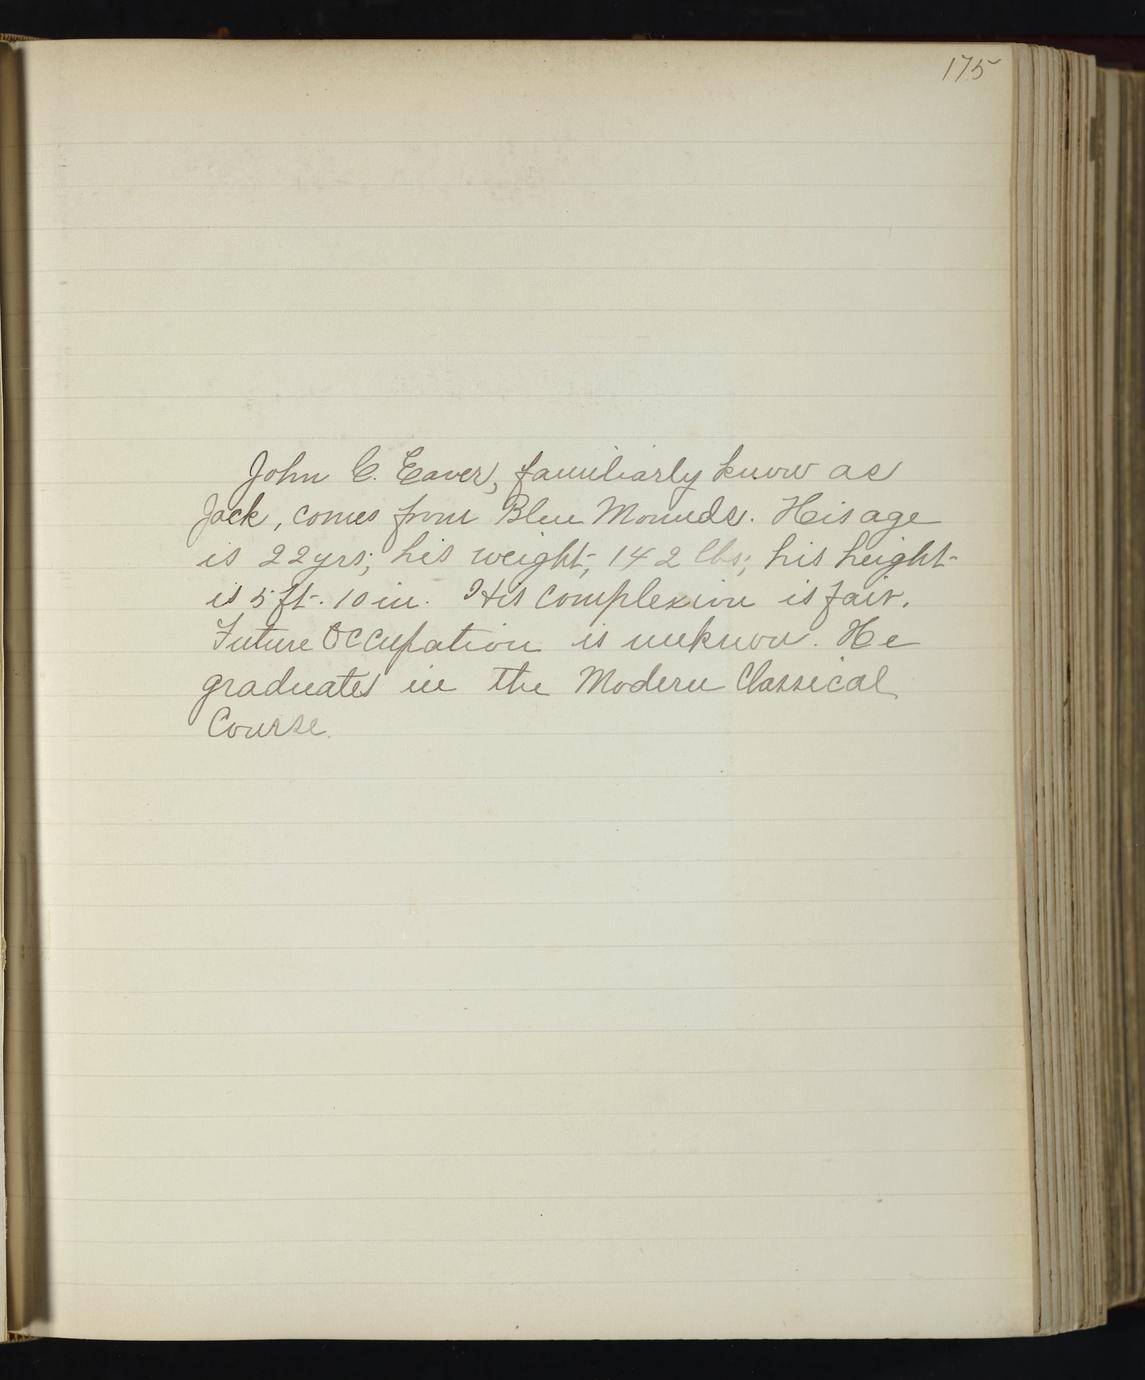 175
John C. Eaver, familiarly know as
Jack, comes from Blue Mounds. His age
is 22 yrs; his weight, 142 lbs; his height
is 5 ft. 10 in. His complexion is fair.
Future Occupation is unknow. He
graduates in the Modern Classical
Course.